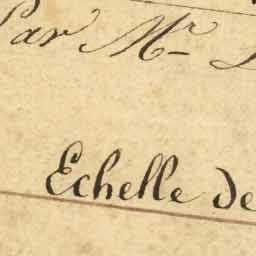 Par Mr
Echelle de